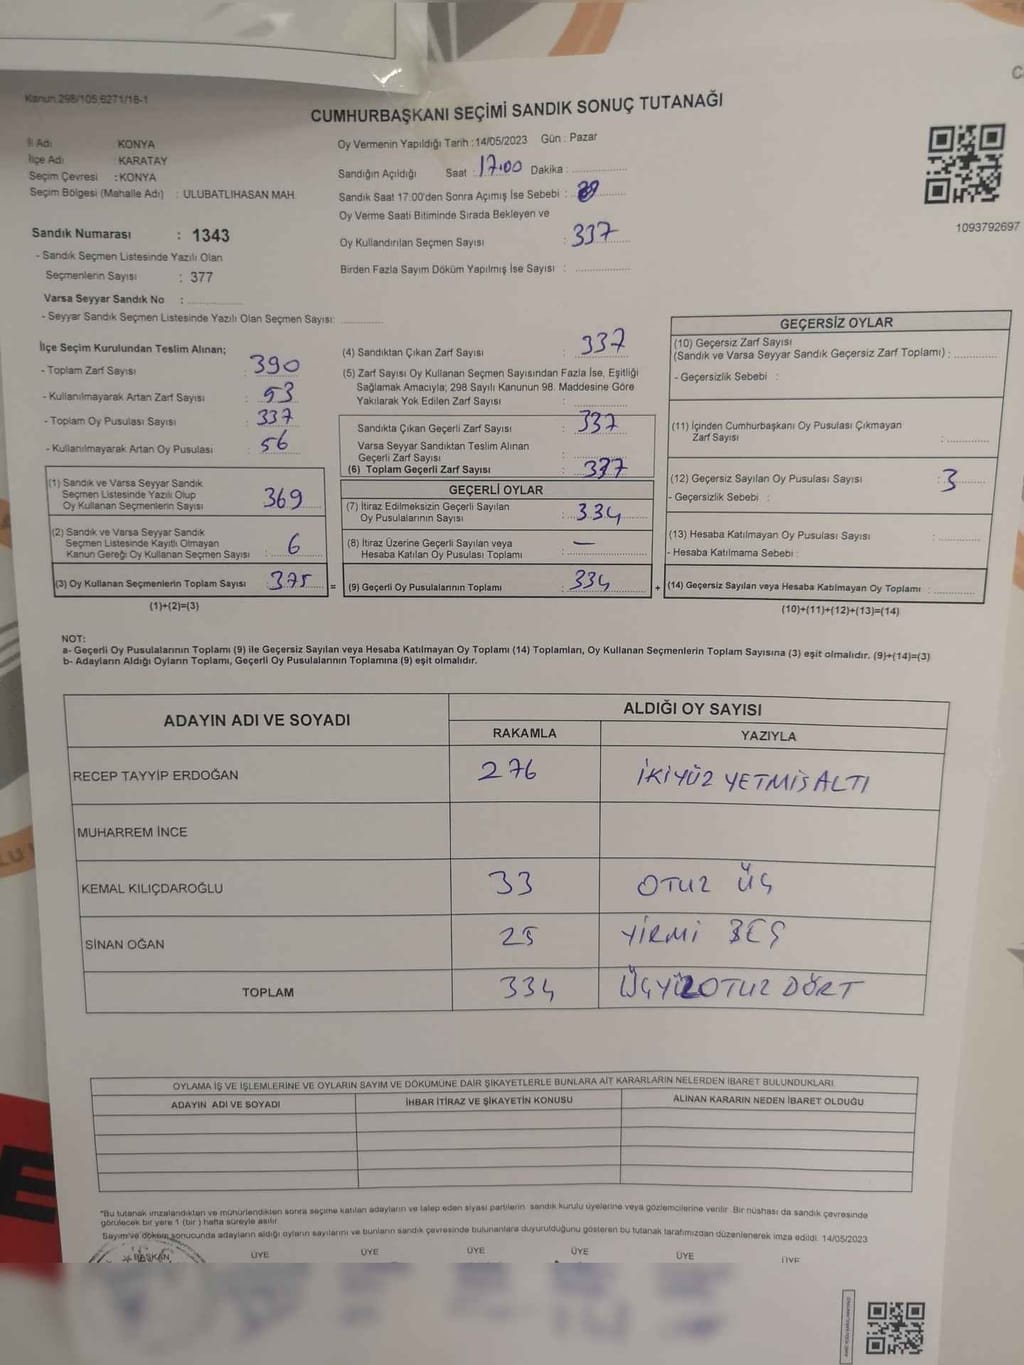 Kanun 298/105,6271/18-1
CUMHURBAŞKANI SEÇİMİ SANDIK SONUÇ TUTANAĞI
İl Adı : KONYA
İlçe Adı : KARATAY
Seçim Çevresi : KONYA
Seçim Bölgesi (Mahalle Adı) : ULUBATLIHASAN MAH.
Sandık Numarası : 1343
- Sandık Seçmen Listesinde Yazılı Olan
Seçmenlerin Sayısı : 377
Varsa Seyyar Sandık No :
- Seyyar Sandık Seçmen Listesinde Yazılı Olan Seçmen Sayısı:
Oy Vermenin Yapıldığı Tarih :14/05/2023 Gün : Pazar
Sandığın Açıldığı Saat : 17.00 Dakika :
Sandık Saat 17:00'den Sonra Açımış İse Sebebi :
Oy Verme Saati Bitiminde Sırada Bekleyen ve
Oy Kullandırılan Seçmen Sayısı : 337
Birden Fazla Sayım Döküm Yapılmış İse Sayısı :
1093792697
İlçe Seçim Kurulundan Teslim Alınan;
- Toplam Zarf Sayısı : 390
- Kullanılmayarak Artan Zarf Sayısı : 53
- Toplam Oy Pusulası Sayısı : 337
- Kullanılmayarak Artan Oy Pusulası : 56
(1) Sandık ve Varsa Seyyar Sandık
Seçmen Listesinde Yazılı Olup
Oy Kullanan Seçmenlerin Sayısı 369
(2) Sandık ve Varsa Seyyar Sandık
Seçmen Listesinde Kayıtlı Olmayan
Kanun Gereği Oy Kullanan Seçmen Sayısı : 6
(3) Oy Kullanan Seçmenlerin Toplam Sayısı : 375 =
(1)+(2)=(3)
(4) Sandıktan Çıkan Zarf Sayısı : 337
(5) Zarf Sayısı Oy Kullanan Seçmen Sayısından Fazla İse, Eşitliği
Sağlamak Amacıyla; 298 Sayılı Kanunun 98. Maddesine Göre
Yakılarak Yok Edilen Zarf Sayısı :
Sandıkta Çıkan Geçerli Zarf Sayısı : 337
Varsa Seyyar Sandıktan Teslim Alınan
Geçerli Zarf Sayısı :
(6) Toplam Geçerli Zarf Sayısı : 337
GEÇERLİ OYLAR
(7) İtiraz Edilmeksizin Geçerli Sayılan
Oy Pusulalarının Sayısı : 334
(8) İtiraz Üzerine Geçerli Sayılan veya
Hesaba Katılan Oy Pusulası Toplamı : —
(9) Geçerli Oy Pusulalarının Toplamı : 334 +
GEÇERSİZ OYLAR
(10) Geçersiz Zarf Sayısı
(Sandık ve Varsa Seyyar Sandık Geçersiz Zarf Toplamı) :
- Geçersizlik Sebebi :
(11) İçinden Cumhurbaşkanı Oy Pusulası Çıkmayan
Zarf Sayısı :
(12) Geçersiz Sayılan Oy Pusulası Sayısı : 3
- Geçersizlik Sebebi :
(13) Hesaba Katılmayan Oy Pusulası Sayısı :
- Hesaba Katılmama Sebebi :
(14) Geçersiz Sayılan veya Hesaba Katılmayan Oy Toplamı :
(10)+(11)+(12)+(13)=(14)
NOT:
a- Geçerli Oy Pusulalarının Toplamı (9) ile Geçersiz Sayılan veya Hesaba Katılmayan Oy Toplamı (14) Toplamları, Oy Kullanan Seçmenlerin Toplam Sayısına (3) eşit olmalıdır. (9)+(14)=(3)
b- Adayların Aldığı Oyların Toplamı, Geçerli Oy Pusulalarının Toplamına (9) eşit olmalıdır.
ADAYIN ADI VE SOYADI ALDIĞI OY SAYISI
RAKAMLA YAZIYLA
RECEP TAYYİP ERDOĞAN 276 İKİYÜZ YETMİŞ ALTI
MUHARREM İNCE
KEMAL KILIÇDAROĞLU 33 OTUZ ÜÇ
SİNAN OĞAN 25 YİRMİ BEŞ
TOPLAM 334 ÜÇYÜZOTUZ DÖRT
OYLAMA İŞ VE İŞLEMLERİNE VE OYLARIN SAYIM VE DÖKÜMÜNE DAİR ŞİKAYETLERLE BUNLARA AİT KARARLARIN NELERDEN İBARET BULUNDUKLARI
ADAYIN ADI VE SOYADI İHBAR İTİRAZ VE ŞİKAYETİN KONUSU ALINAN KARARIN NEDEN İBARET OLDUĞU
*Bu tutanak imzalandıktan ve mühürlendikten sonra seçime katılan adayların ve talep eden siyasi partilerin sandık kurulu üyelerine veya gözlemcilerine verilir. Bir nüshası da sandık çevresinde
görülecek bir yere 1 (bir) hafta süreyle asılır.
Sayım ve döküm sonucunda adayların aldığı oyların sayılarını ve bunların sandık çevresinde bulunanlara duyurulduğunu gösteren bu tutanak tarafımızdan düzenlenerek imza edildi. 14/05/2023
BAŞKAN ÜYE ÜYE ÜYE ÜYE ÜYE ÜYE